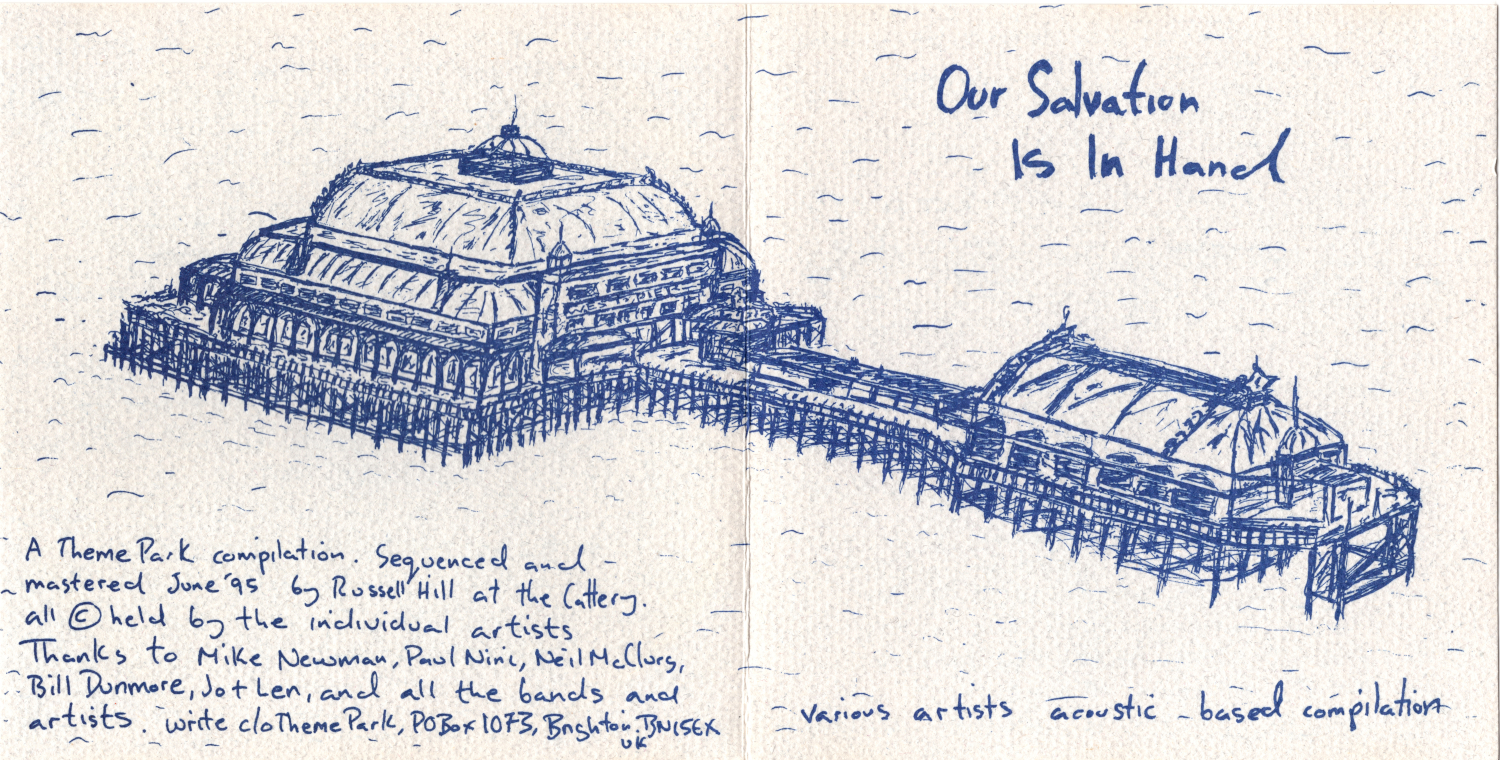 Our Salvation
Is In Hand
A Theme Park compilation. Sequenced and
mastered June '95 by Russell Hill at the Cattery.
all © held by the individual artists
Thanks to Mike Newman, Paul Nini, Neil McClurg,
Bill Dunmore, Jo + Len, and all the bands and
artists. write c/o Theme Park, PO Box 1073, Brighton. BN1 5EX
UK
various artists acoustic-based compilation